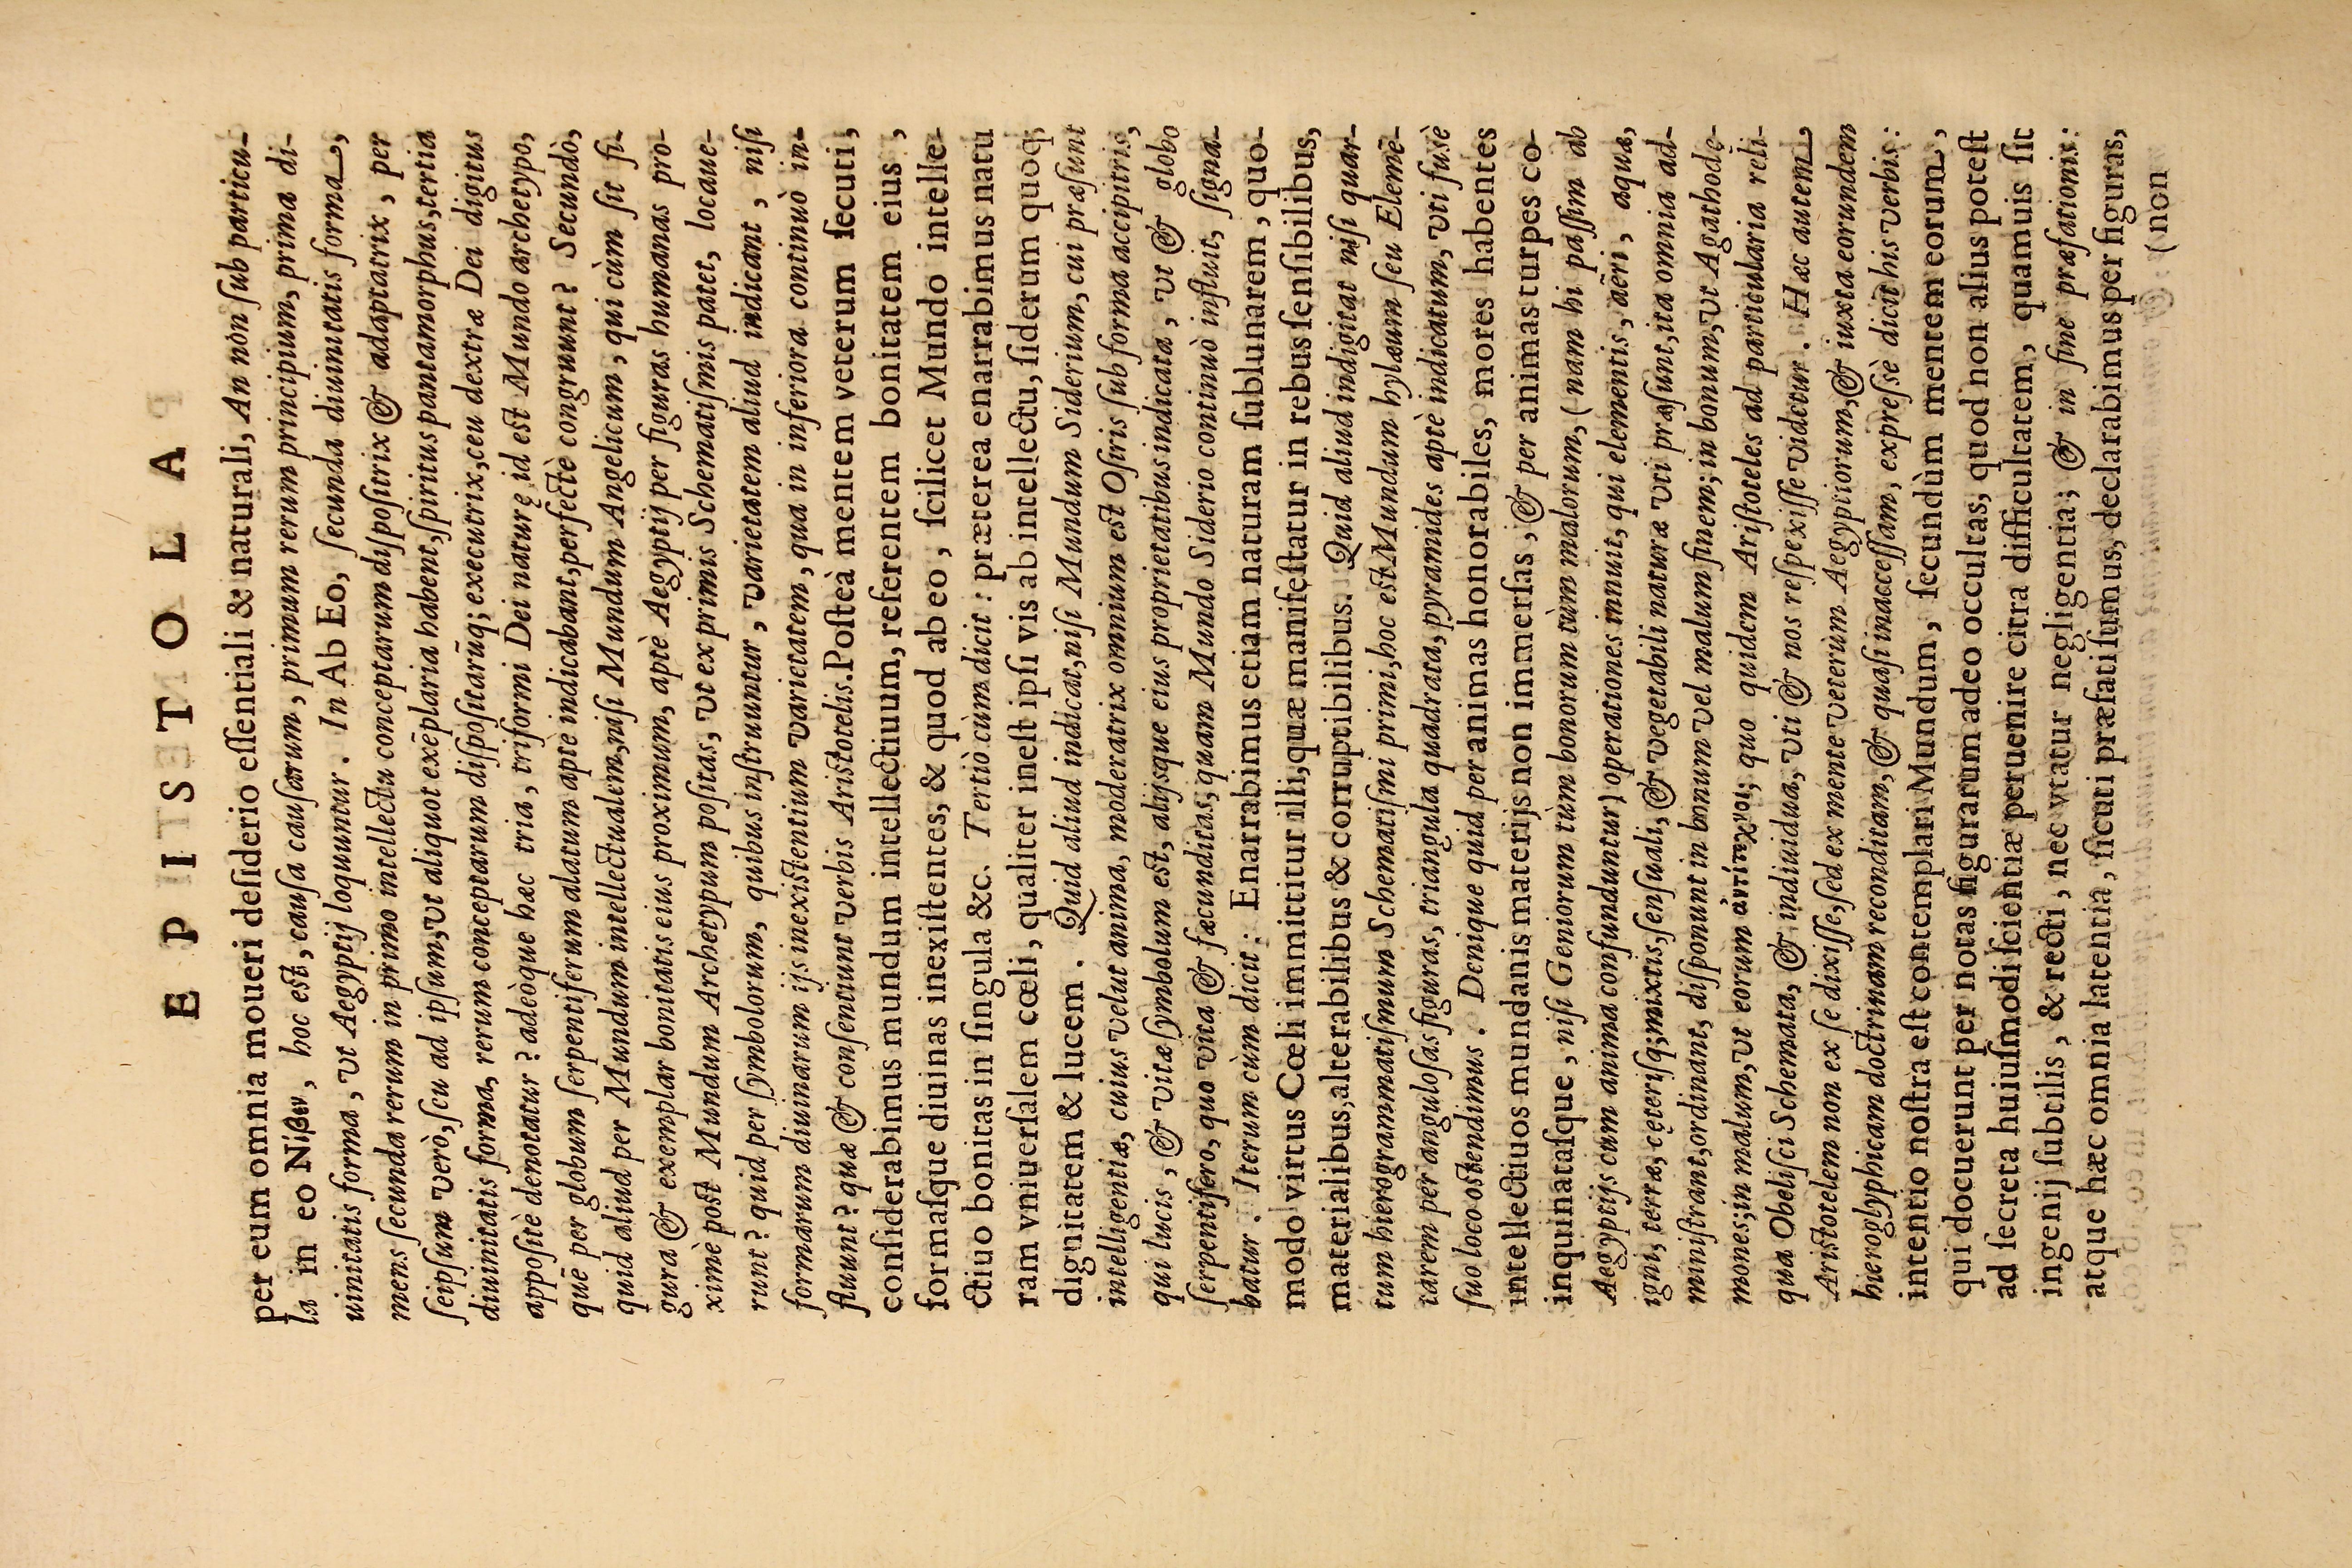 EPISTOLA
per eum omnia moueri deſiderio eſſentiali & naturali, An non ſub paricu-
la in eo Νίβεν, hoc eſt, cauſa cauſarum, primum rerum principium, prima di-
uinitatis forma, vt Aegyptij loquuntur. In Ab Eo, ſecunda diuinitatis forma,
mens ſecunda rerum in primo intellectu conceptarum diſpoſitrix & adaptatrix, per
ſeipſum verò, ſeu ad ipſum, vt aliquot exẽplaria habent, ſpiritus pantamorphus, tertia
diuinitatis forma, rerum conceptarum diſpoſitarũq; executrix, ceu dextræ Dei digitus
appoſitè denotatur? adeòque hæc tria, triformi Dei naturę id eſt Mundo archetypo,
quẽ per globum ſerpentiferum alatum aptè indicabant, perfectè congruunt? Secundò,
quid aliud per Mundum intellectualem, niſi Mundum Angelicum, qui cùm ſit fi-
gura & exemplar bonitatis eius proximum, aptè Aegyptij per figuras humanas pro-
ximè poſt Mundum Archetypum poſitas, vt ex primis Schematiſmis patet, locaue-
runt? quid per ſymbolorum, quibus inſtruuntur, varietatem aliud indicant, niſi
formarum diuinarum ijs inexiſtentium varietatem, qua in inferiora continuò in-
fluunt? quæ & conſentiunt verbis Ariſtotelis. Poſteà mentem veterum ſecuti,
conſiderabimus mundum intellectiuum, referentem bonitatem eius,
formaſque diuinas inexiſtentes, & quod ab eo, ſcilicet Mundo intelle-
ctiuo bonitas in ſingula &c. Tertiò cùm dicit: præterea enarrabimus natu
ram vniuerſalem cœli, qualiter ineſt ipſi vis ab intellectu, ſiderum quoq;
dignitatem & lucem. Quid aliud indicat, niſi Mundum Siderium, cui præſunt
intelligentiæ, cuius velut anima, moderatrix omnium eſt Oſiris ſub forma accipitris,
qui lucis, & vitæ ſymbolum eſt, alijsque eius proprietatibus indicata, vt & globo
ſerpentifero, quo vita & fæcunditas, quam Mundo Siderio continuò influit, ſigna-
batur. Iterum cùm dicit: Enarrabimus etiam naturam ſublunarem, quo-
modo virtus Cœli immittitur illi, quæ manifeſtatur in rebus ſenſibilibus,
materialibus, alterabilibus & corruptibilibus. Quid aliud indigitat niſi quar-
tum hierogrammatiſmum Schematiſmi primi, hoc eſt Mundum hylæum ſeu Elemẽ-
tarem per anguloſas figuras, triangula quadrata, pyramides aptè indicatum, vti fusè
ſuo loco oſtendimus. Denique quid per animas honorabiles, mores habentes
intellectiuos mundanis materijs non immerſas, & per animas turpes co-
inquinataſque, niſi Geniorum tùm bonorum tùm malorum, (nam hi paſſim ab
Aegyptijs cum anima confunduntur) operationes innuit, qui elementis, aëri, aquæ,
igni, terræ, cęteriſq; mixtis, ſenſuali, & vegetabili naturæ vti præſunt, ita omnia ad-
miniſtrant, ordinant, diſponunt in bonum vel malum finem; in bonum, vt Agathodę-
mones; in malum, vt eorum ἀντίτεχνοι; quo quidem Ariſtoteles ad particularia reli-
qua Obeliſci Schemata, & indiuidua, vti & nos reſpexiſſe videtur. Hæc autem,
Ariſtotelem non ex ſe dixiſſe, ſed ex mente veterùm Aegyptiorum, & iuxta eorundem
hieroglyphicam doctrinam reconditam, & quaſi inacceſſam, expreſsè dicit his verbis:
intentio noſtra eſt contemplari Mundum, ſecundùm mentem eorum,
qui docuerunt per notas figurarum adeo occultas, quod non alius poteſt
ad ſecreta huiuſmodi ſcientiæ peruenire citra difficultatem, quamuis ſit
ingenij ſubtilis, & recti, nec vtatur negligentia; & in fine præfationis:
atque hæc omnia latentia, ſicuti præfati ſumus, declarabimus per figuras,
(non